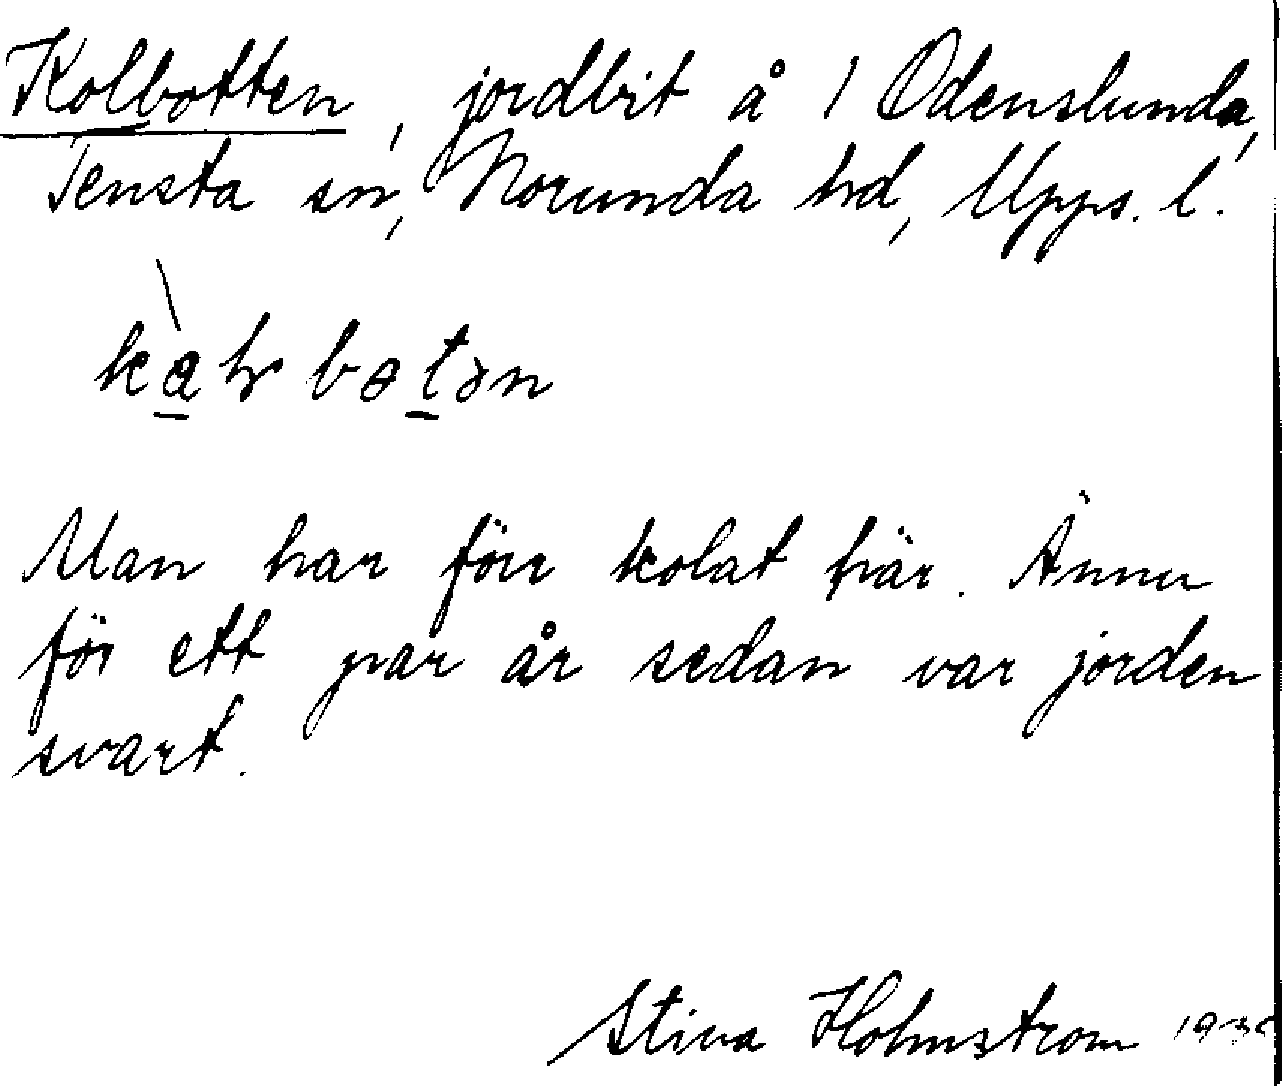 Kolbotten, jordbit å 1 Odenslunda,
Tensta sn, Norunda hd, Upps. l.
Man har förr kolat här. Ännu
för ett par år sedan var jorden
svart.
Stina Holmström